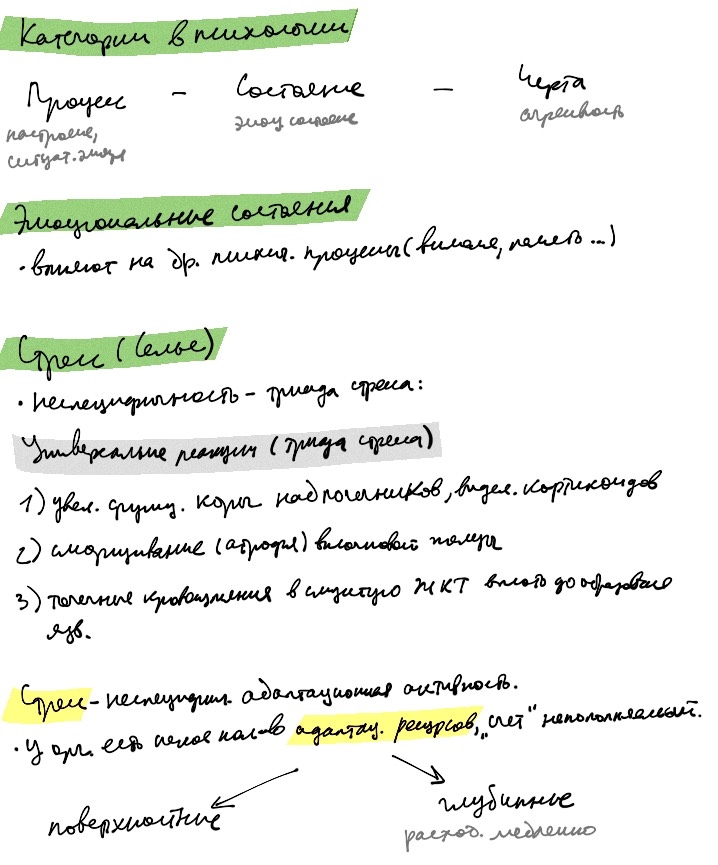 Категории в психологии
Процесс – Состояние – Черта
настроение, эмоц состояние
ситуат. эмоция
Эмоциональные состояния
• влияют на др. психич. процессы (внимание, память ...)
Стресс (Селье)
• Неспецифичность – триада стресса:
Универсальные реакции (триада стресса)
1) увел. функц. коры надпочечников, выдел. кортикоидов
2) сморщивание (атрофия) вилочковой железы
3) точечные кровоизлияния в слизистую ЖКТ вплоть до образование
язв.
Стресс – неспецифич. адаптационная активность.
• У орг. есть некое кол-во адаптац. ресурсов, „счет“ непополняемый.
поверхностные глубинные
расход. медленно